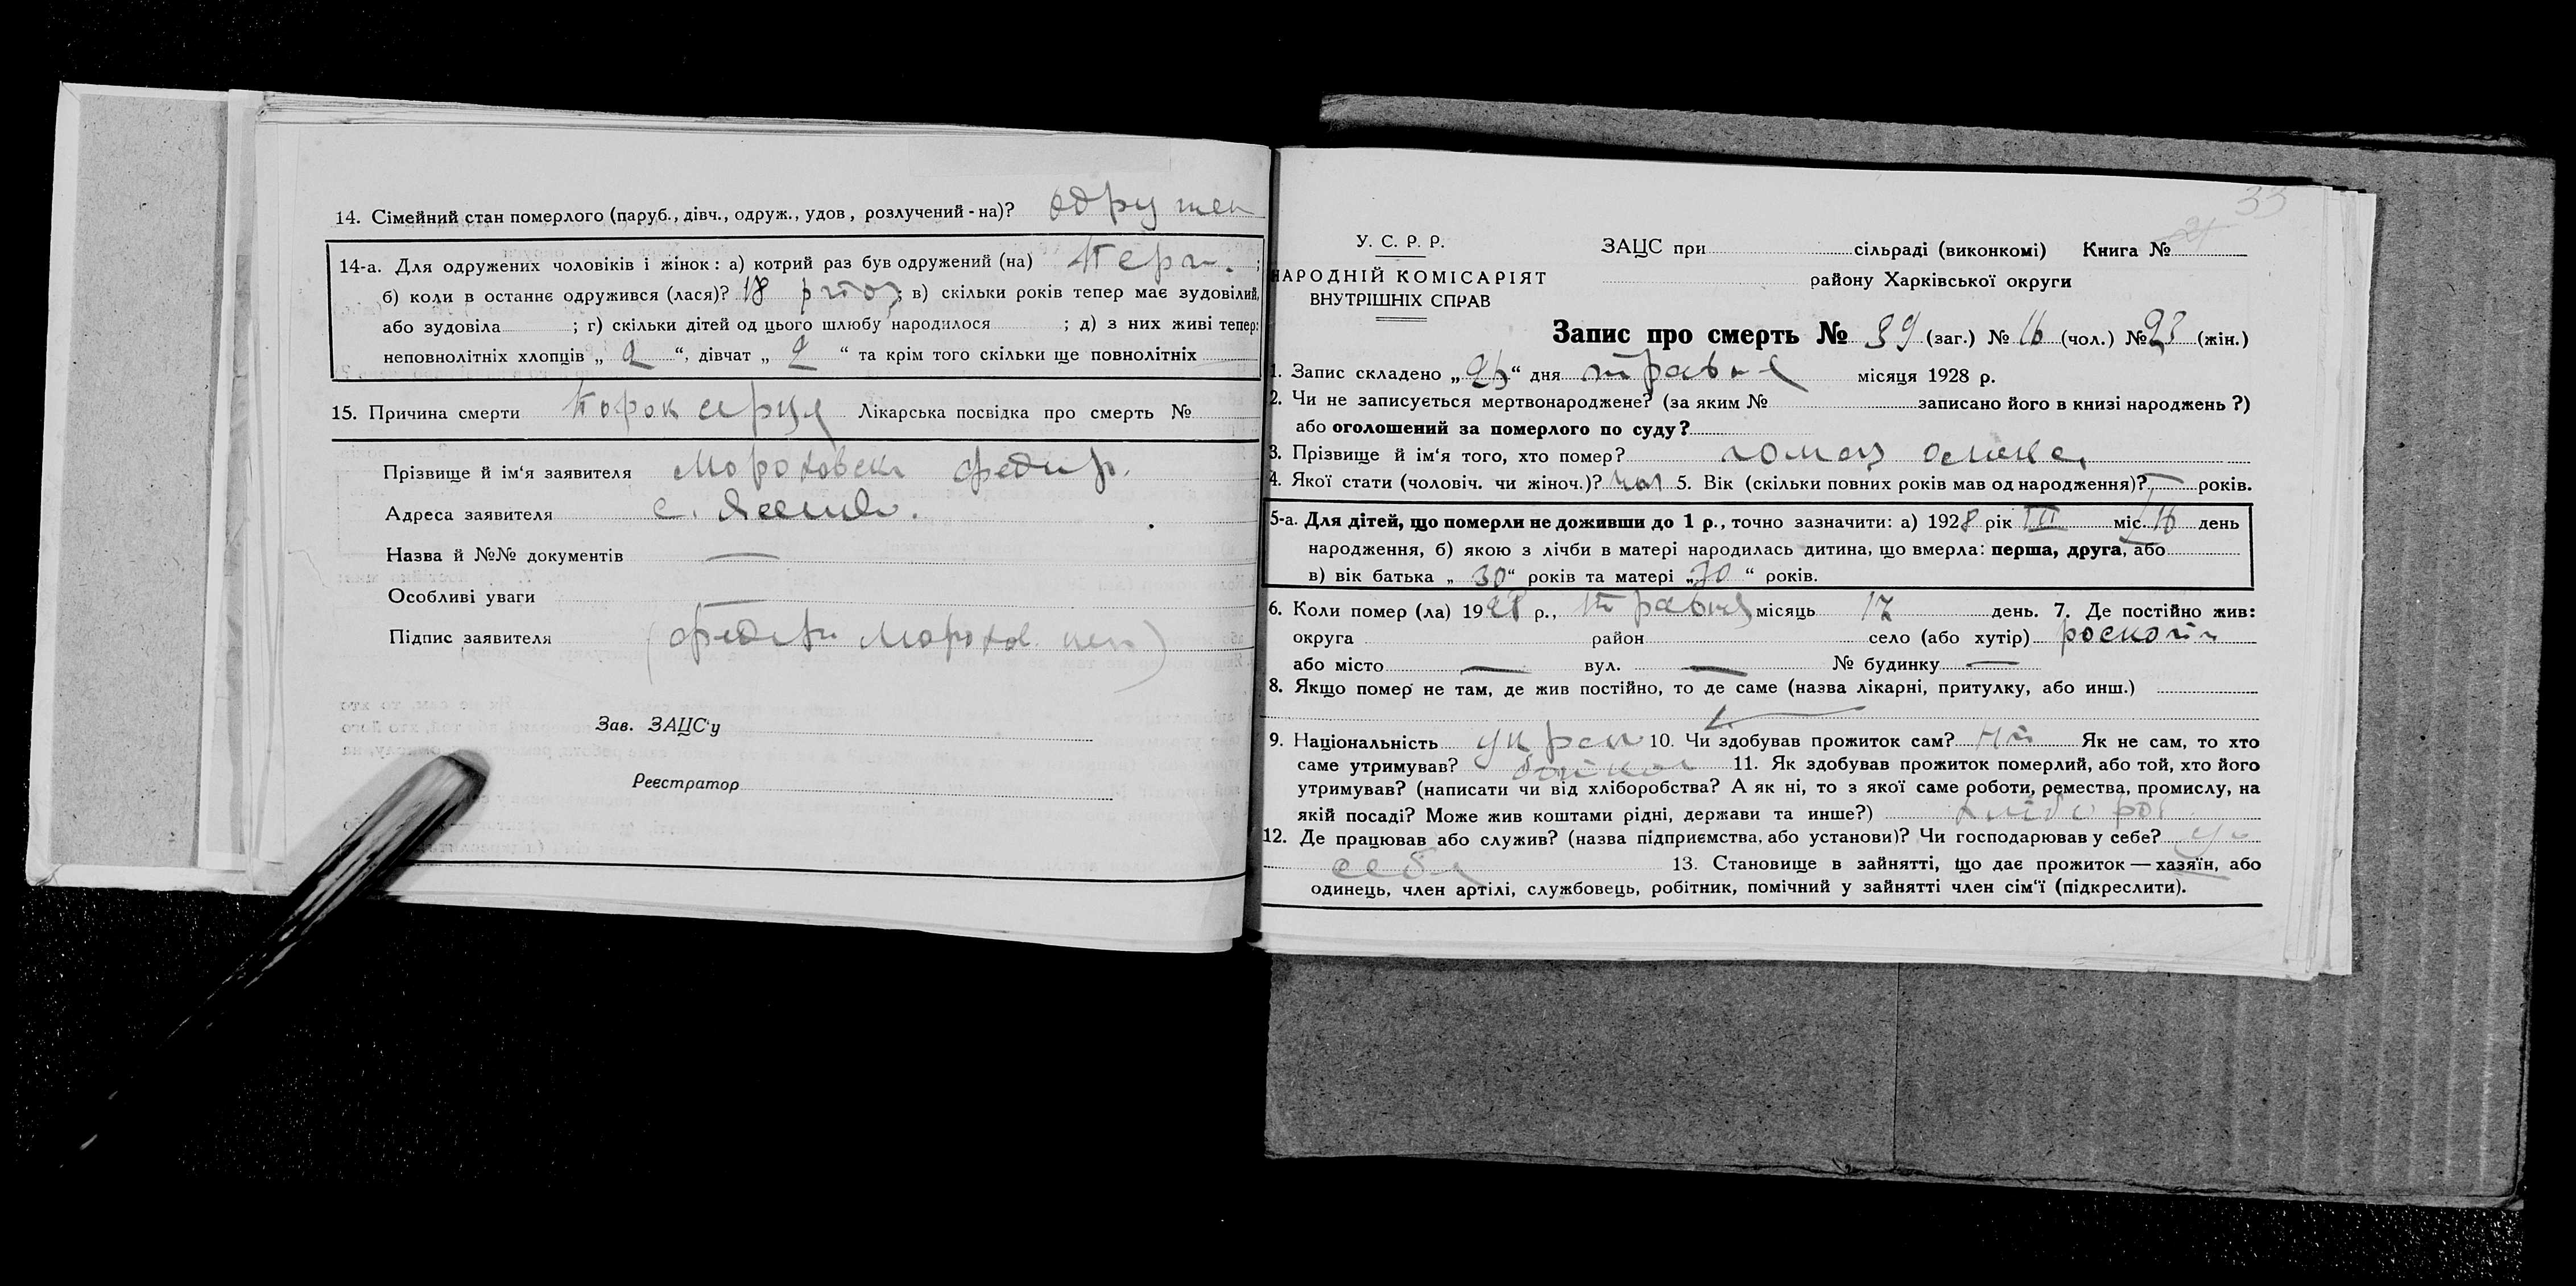 14. Сімейний стан померлого (паруб., дівч., одруж., удов, розлучений-на)? одружен
14-а. Для одружених чоловіків і жінок: а) котрий раз був одружений (на) ;
б) коли в останнє одружився (лася)? 18 ; в) скільки років тепер має зудовілий,
або зудовіла ; г) скільки дітей од цього шлюбу народилося ; д) з них живі тепер:
неповнолітніх хлопців „ 2 “, дівчат „ 2 “ та крім того скільки ще повнолітніх
15. Причина смерти Порок серця Лікарська посвідка про смерть №
Прізвище й ім‘я заявителя Федир
Адреса заявителя с.
Назва й №№ документів —
Особливі уваги
Підпис заявителя
Зав. ЗАЦС'у
Реєстратор
33
У. С. Р. Р.
ЗАЦС при сільраді (виконкомі) Книга №
НАРОДНІЙ КОМІСАРІЯТ
району Харківської округи
ВНУТРІШНІХ СПРАВ
Запис про смерть № 39 (заг.) № 16 (чол.) № 23 (жін.)
1. Запис складено „ “ дня травня місяця 1928 р.
2. Чи не записується мертвонароджене? (за яким № записано його в книзі народжень ?)
або оголошений за померлого по суду?
3. Прізвище й ім‘я того, хто помер?
4. Якої стати (чоловіч. чи жіноч.)? чол 5. Вік (скільки повних років мав од народження)? — років.
5-а. Для дітей, що померли не доживши до 1 р., точно зазначити: а) 1928 рік III міс. 16 день
народження, б) якою з лічби в матері народилась дитина, що вмерла: перша, друга, або
в) вік батька „ 30 “ років та матері „ 30 “ років.
6. Коли помер (ла) 1928 р., травня місяць 17 день. 7. Де постійно жив:
округа район село (або хутір)
або місто — вул. — № будинку —
8. Якщо помер не там, де жив постійно, то де саме (назва лікарні, притулку, або инш.)
9. Національність украи 10. Чи здобував прожиток сам? ні Як не сам, то хто
саме утримував? 11. Як здобував прожиток померлий, або той, хто його
утримував? (написати чи від хліборобства? А як ні, то з якої саме роботи, ремества, промислу, на
якій посаді? Може жив коштами рідні, держави та инше?) хлібороб
12. Де працював або служив? (назва підприємства, або установи)? Чи господарював у себе? у
себе 13. Становище в зайнятті, що дає прожиток — хазяїн, або
одинець, член артілі, службовець, робітник, помічний у зайнятті член сім‘ї (підкреслити).